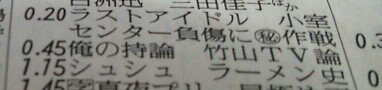 三田佳子ほか
0.20ラストアイドル 小室
センター負傷に㊙作戦
0.45俺の持論 竹山TV論
1.15シュシュ ラーメン史
1.45